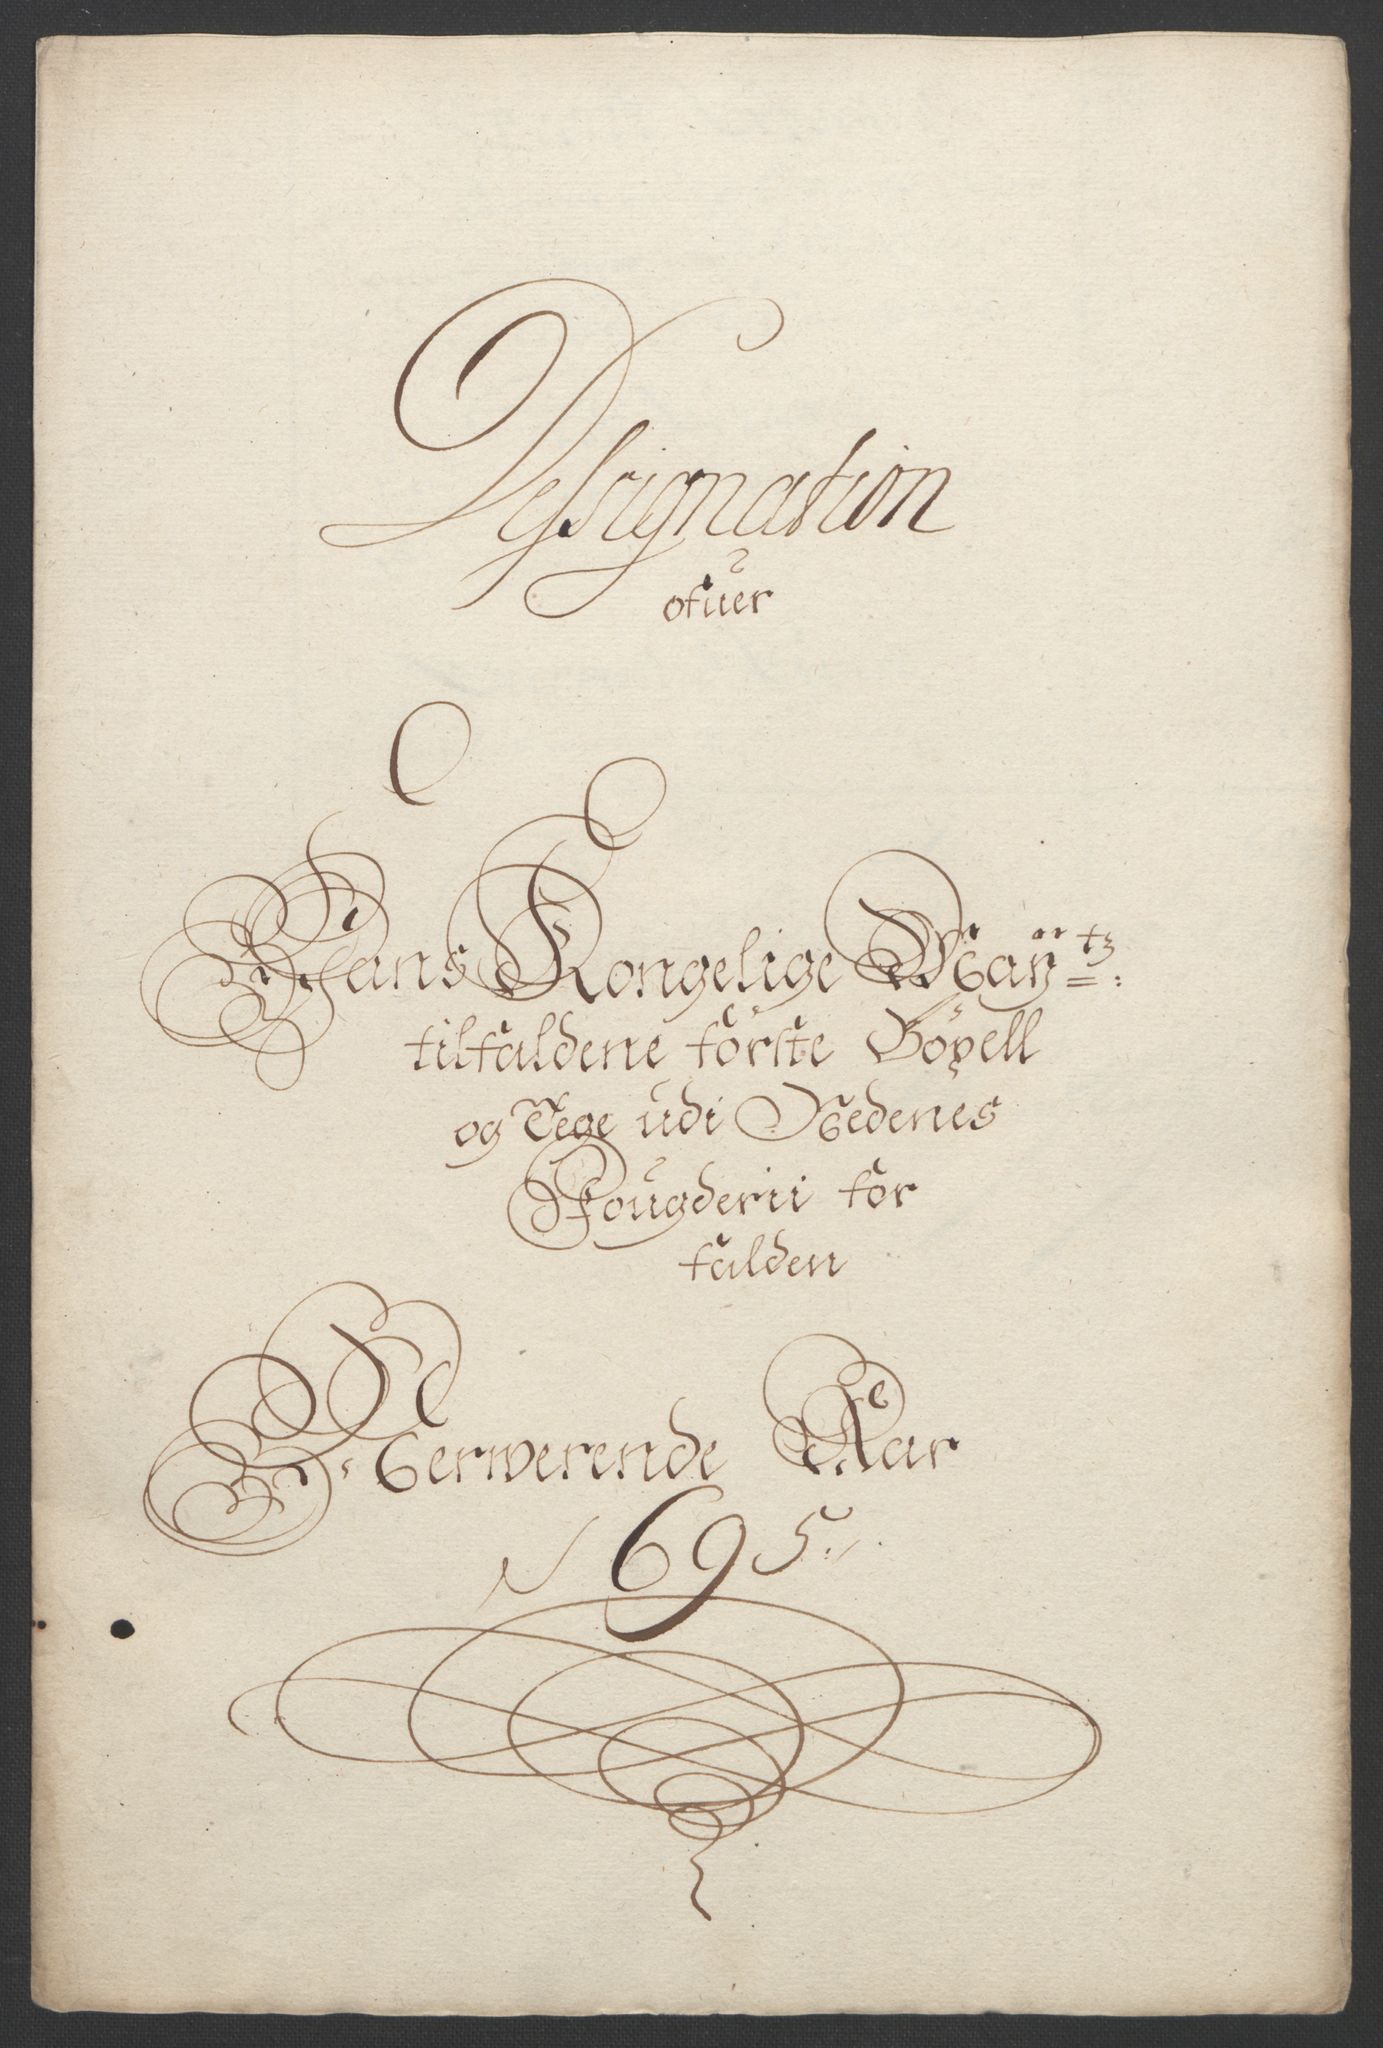 Dessignation
ofuer
Hans Kongelige Maÿtz:
tilfaldene förste Böxell
og Tege udi Nedenes
Fougderii for
falden
Nerwerende Aar
1695.